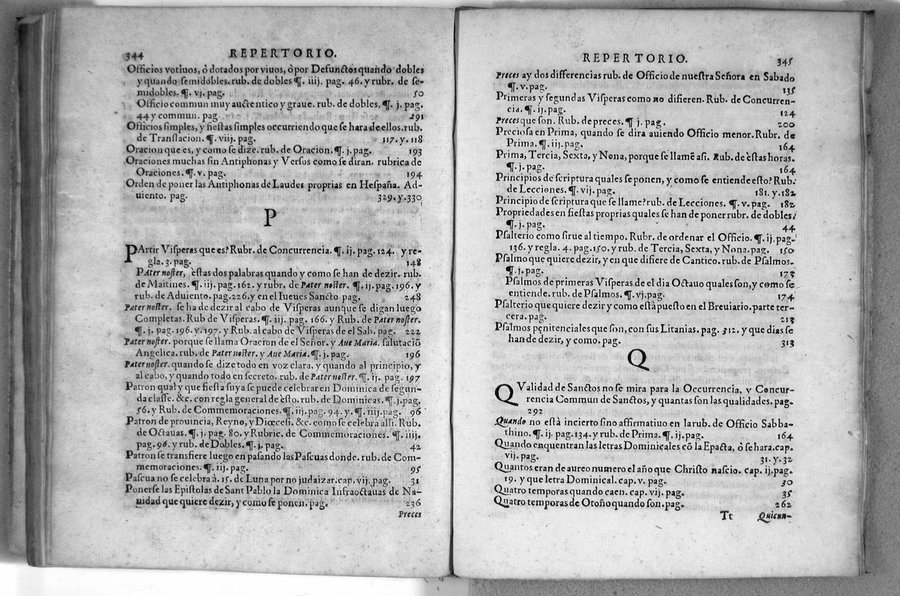 344 REPERTORIO.
Officios votiuos, ò dotados por viuos, ò por Defunctos quando dobles
y quando semidobles. rub. de dobles ¶. iiij. pag. 46. y rubr. de se-
midobles. ¶. vj. pag. 50
Officio commun muy auctentico y graue. rub. de dobles. ¶. j. pag.
44 y commun. pag 291
Officios simples, y fiestas simples occurriendo que se hara de ellos. rub.
de Translacion. ¶. viij. pag. 117. y. 118
Oracion que es, y como se dize. rub. de Oracion. ¶. j. pag. 193
Oraciones muchas sin Antiphonas y Versos como se diran. rubrica de
Oraciones. ¶. v. pag. 194
Orden de poner las Antiphonas de Laudes proprias en Hespaña. Ad-
uiento. pag. 329. y. 330
P
PArtir Visperas que es? Rubr. de Concurrencia. ¶. ij. pag. 124. y re-
gla. 3. pag. 148
Pater noster, estas dos palabras quando y como se han de dezir. rub.
de Maitines. ¶. iij. pag. 162. y rubr. de Pater noster. ¶. ij. pag. 196. y
rub. de Aduiento. pag. 226. y en el Iueues Sancto pag. 248
Pater noster. se ha de dezir al cabo de Visperas aunque se digan luego
Completas. Rub de Visperas. ¶. iij. pag. 166. y Rub. de Pater noster.
¶. j. pag. 196. v. 197. y Rub. al cabo de Visperas de el Sab. pag. 222
Pater noster. porque se llama Oracion de el Señor. y Aue Maria. salutaciõ
Angelica. rub. de Pater noster. y Aue Maria. ¶. j. pag. 196
Pater noster. quando se dize todo en voz clara. y quando al principio, y
al cabo, y quando todo en secreto. rub. de Pater noster. ¶. ij. pag. 197
Patron qual y que fiesta suya se puede celebrar en Dominica de segun-
da classe. &c. con regla general de esto. rub. de Dominicas. ¶. j. pag.
56. y Rub. de Commemoraciones. ¶. iij. pag. 94. y. ¶. iiij. pag. 96
Patron de prouincia, Reyno, y Diocesi. &c. como se celebra alli. Rub.
de Octauas. ¶. j. pag. 80. y Rubric. de Commemoraciones. ¶. iiij.
pag. 96. y rub. de Dobles. ¶. j. pag. 42
Patron se transfiere luego en pasando las Pascuas donde. rub. de Com-
memoraciones. ¶. iij. pag. 95
Pascua no se celebra à. 15. de Luna por no judaizar. cap. vij. pag. 31
Ponerse las Epistolas de Sant Pablo la Dominica Infraoctauas de Na-
uidad que quiere dezir, y como se ponen. pag. 236
Preces
REPERTORIO. 345
Preces ay dos differencias rub. de Officio de nuestra Señora en Sabado
¶. v. pag. 135
Primeras y segundas Visperas como no difieren. Rub. de Concurren-
cia. ¶. ij. pag. 124
Preces que son. Rub. de preces. ¶ j. pag. 200
Preciosa en Prima, quando se dira auiendo Officio menor. Rubr. de
Prima. ¶. iij. pag. 164
Prima, Tercia, Sexta, y Nona, porque se llamē asi. Rub. de estas horas.
¶. j. pag. 164
Principios de scriptura quales se ponen, y como se entiende esto? Rub.
de Lecciones. ¶. vij. pag. 181. y. 182
Principio de scriptura que se llame? rub. de Lecciones. ¶. v. pag. 182
Propriedades en fiestas proprias quales se han de poner rubr. de dobles.
¶. j. pag. 44
Psalterio como sirue al tiempo. Rubr. de ordenar el Officio. ¶. ij. pag.
136. y regla. 4. pag. 150. y rub. de Tercia, Sexta, y Nona. pag. 150
Psalmo que quiere dezir, y en que difiere de Cantico. rub. de Psalmos.
¶. j. pag. 173
Psalmos de primeras Visperas de el dia Octauo quales son, y como se
entiende. rub. de Psalmos. ¶. vj. pag. 174
Psalterio que quiere dezir y como està puesto en el Breuiario. parte ter-
cera. pag. 213
Psalmos penitenciales que son, con sus Litanias. pag. 312. y que dias se
han de dezir, y como. pag. 313
Q
QValidad de Sanctos no se mira para la Occurrencia. y Concur-
rencia Commun de Sanctos, y quantas son las qualidades. pag.
292
Quando no està incierto sino affirmatiuo en la rub. de Officio Sabba-
thino. ¶. ij. pag. 134. y rub. de Prima. ¶. ij. pag. 164
Quando encuentran las letras Dominicales cõ la Epacta, ò se hara. cap.
vij. pag. 31. y. 32
Quantos eran de aureo numero el año que Christo nascio. cap. ij. pag.
19. y que letra Dominical. cap. v. pag. 30
Quatro temporas quando caen. cap. vij. pag. 35
Quatro temporas de Otoño quando son. pag. 262
Tt Quicun-